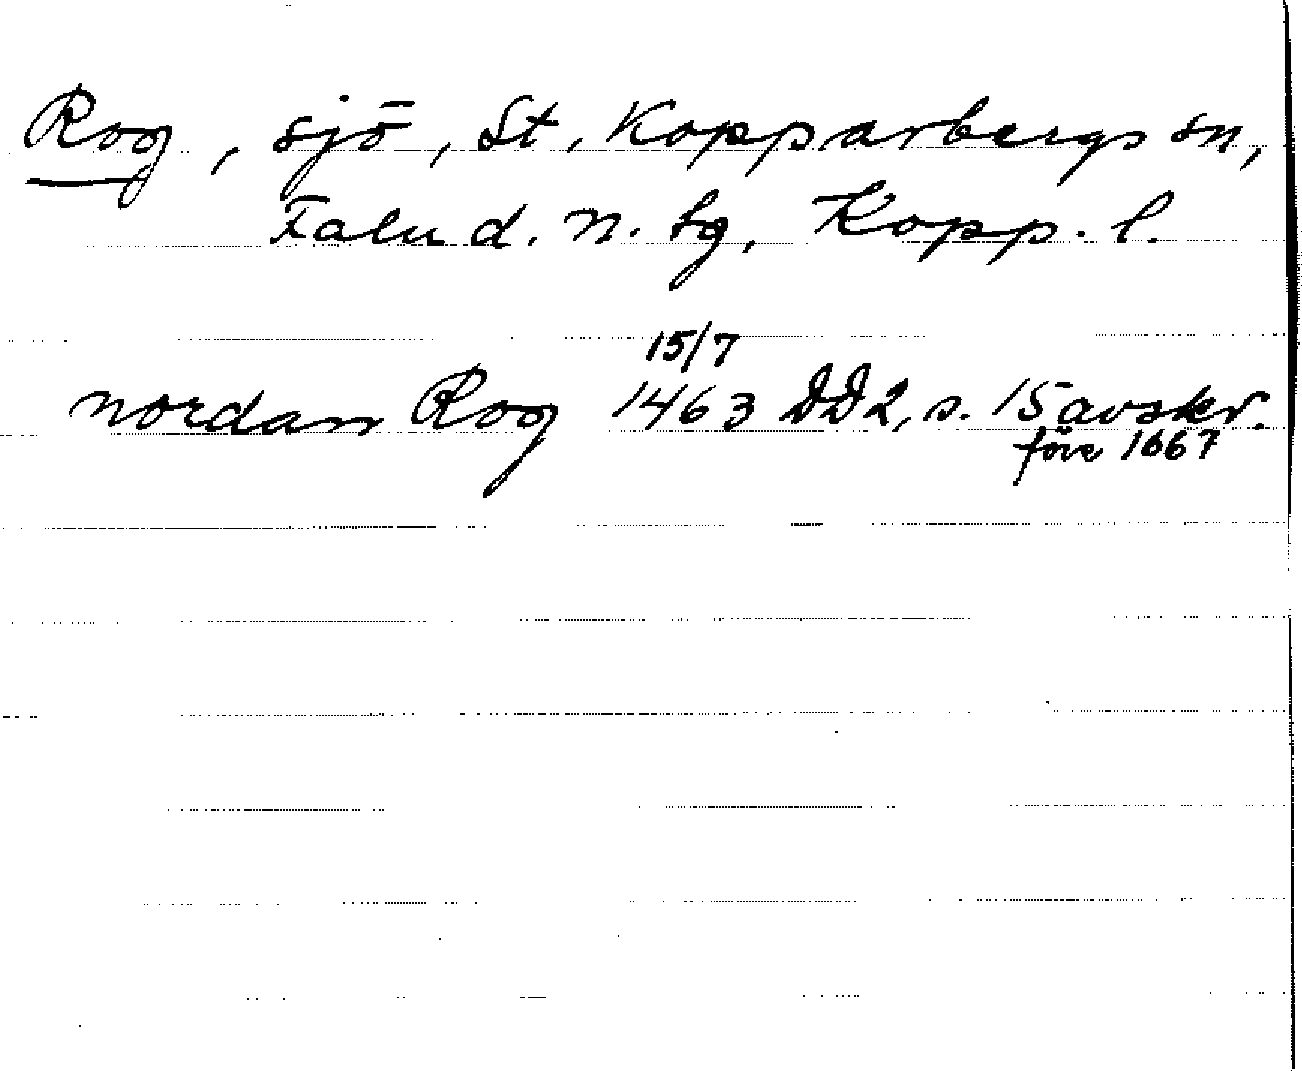 Rog, sjö, St. Kopparbergs sn,
Falu d. n. tg, Kopp. l.
15/7
nordan Rog 1463 DD2, s. 15 avskr.
före 1667